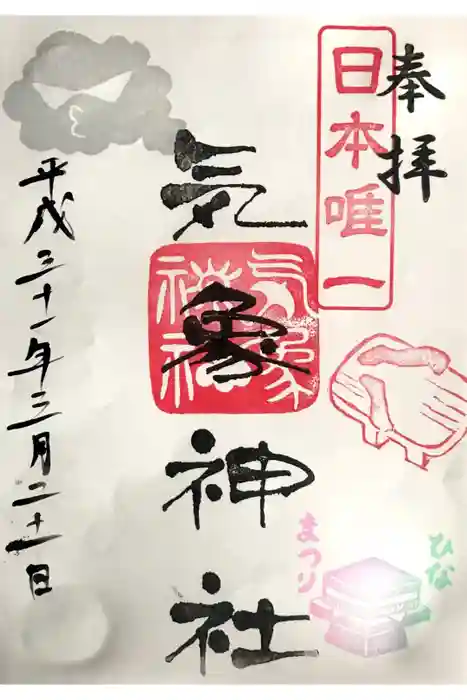 奉拝
日本唯一
気象神社
気象神社
平成三十一年三月二十一日
ひな
まつり